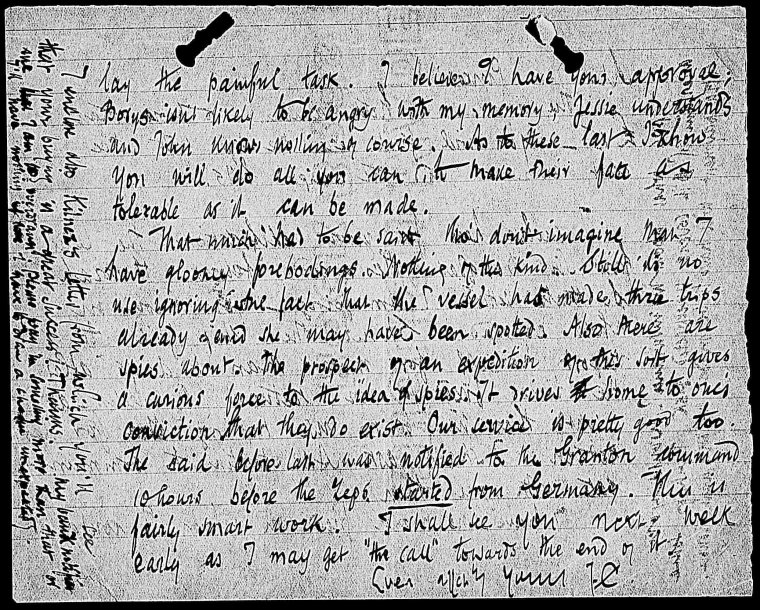 lay the painful task. I believe I have your approval.
Borys isn't likely to be angry with my memory, Jessie understands
and John knows nothing of course. As to these last I know
you will do all you can to make their fate as
tolerable as it can be made.
That much had to be said tho' don't imagine that I
have gloomy forebodings. Nothing of the kind. Still it's no
use ignoring the fact that the vessel has made three trips
already and she may have been spotted. Also there are
spies about. The prospect of an expedition of this sort gives
a curious force to the idea of spies. It drives it home to one's
conviction that they do exist. Our service is pretty good too.
The raid before last was notified to the Granton command
10 hours before the Zeps started from Germany. This is
fairly smart work. I shall see you next week
early as I may get "the call" towards the end of it.
Ever affly Yours J.C.
I enclose also Kilner's letter from which you'll see
that your buying is a great success